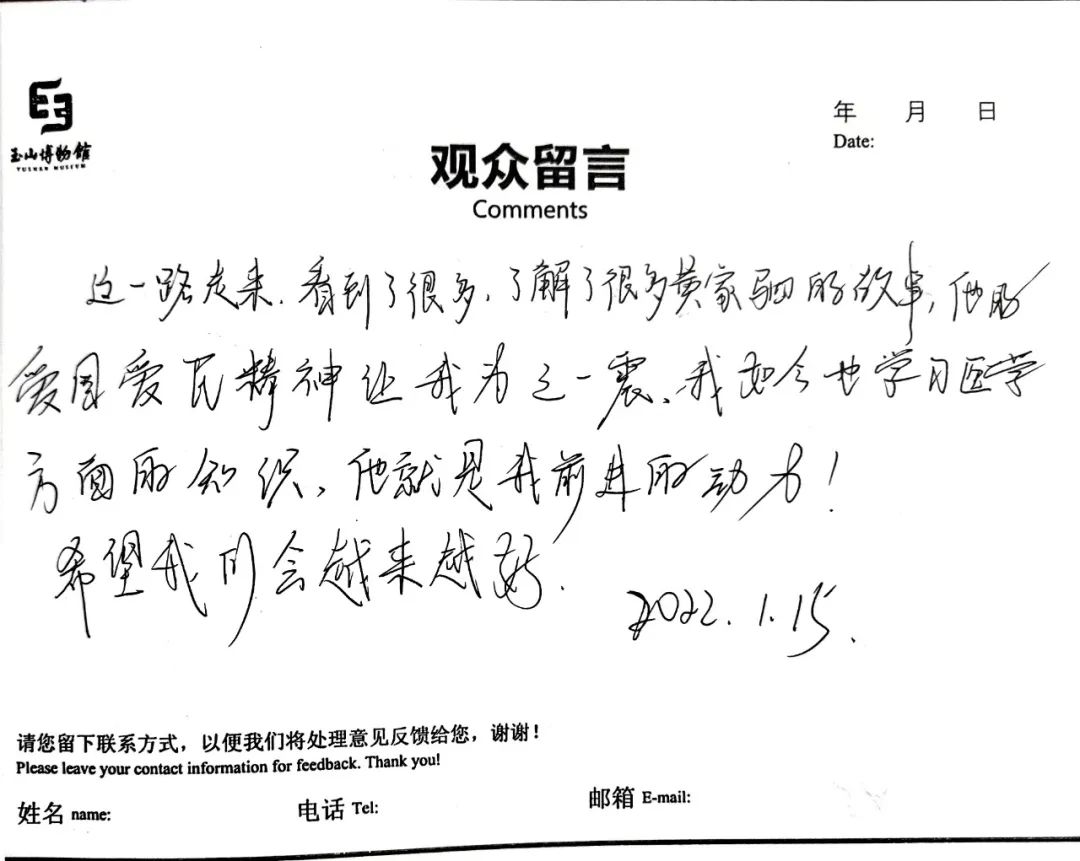 玉山博物馆
YUSHAN MUSEUM
年 月 日
Date:
观众留言
Comments
这一路走来,看到了很多,了解了很多黄家驷的故事,他的
爱国爱民精神让我为之一震,我如今也学习医学
方面的知识,他就是我前进的动力!
希望我们会越来越好.
2022.1.15.
请您留下联系方式,以便我们将处理意见反馈给您,谢谢!
Please leave your contact information for feedback. Thank you!
姓名 name: 电话 Tel: 邮箱 E-mail: